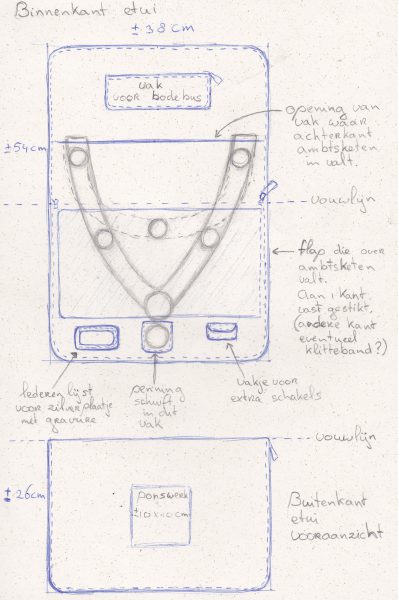 Binnenkant etui
± 38 cm
vak
voor bodebus
opening van
vak waar
achterkant
ambtsketen
in valt.
± 54 cm
vouwlijn
flap die over
ambtsketen
valt.
Aan 1 kant
vast gestikt.
(andere kant
eventueel
klitteband?)
lederen lijst
voor zilver plaatje
met gravure
penning
schuift
in dit
vak
vakje voor
extra schakels
vouwlijn
± 26 cm
ponswerk
± 10x10 cm
Buitenkant
etui
vooraanzicht